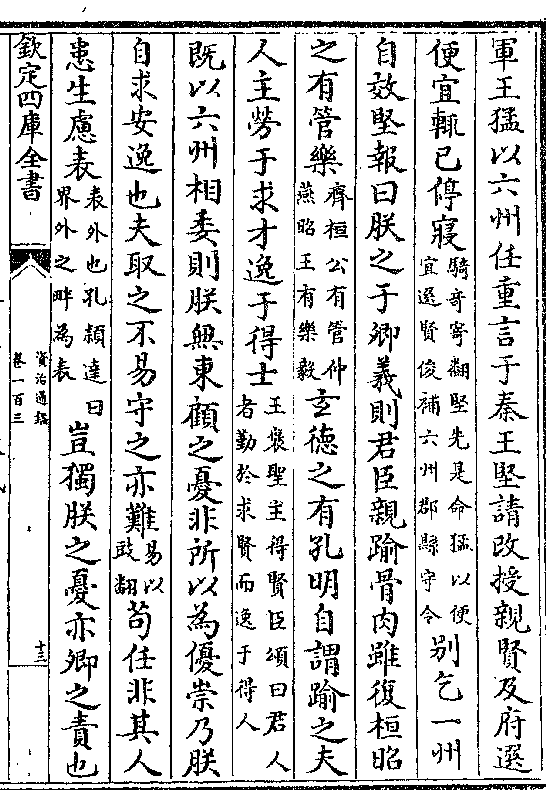 軍王猛以六州任重言于秦王堅請改授親賢及府選
便宜輒已停寢騎奇寄翻堅先是命猛以便宜選賢俊補六州郡縣守令別乞一州
自效堅報曰朕之于卿義則君臣親踰骨肉雖復桓昭
之有管樂齊桓公有管仲燕昭王有樂毅玄德之有孔明自謂踰之夫
人主勞于求才逸于得士王襃聖主得賢臣頌曰君人者勤於求賢而逸于得人
既以六州相委則朕無東顧之憂非所以為優崇乃朕
自求安逸也夫取之不易守之亦難易以豉翻苟任非其人
患生慮表表外也孔頴達曰界外之畔為表豈獨朕之憂亦卿之責也
欽定四庫全書
資治通鑑
卷一百三
十三